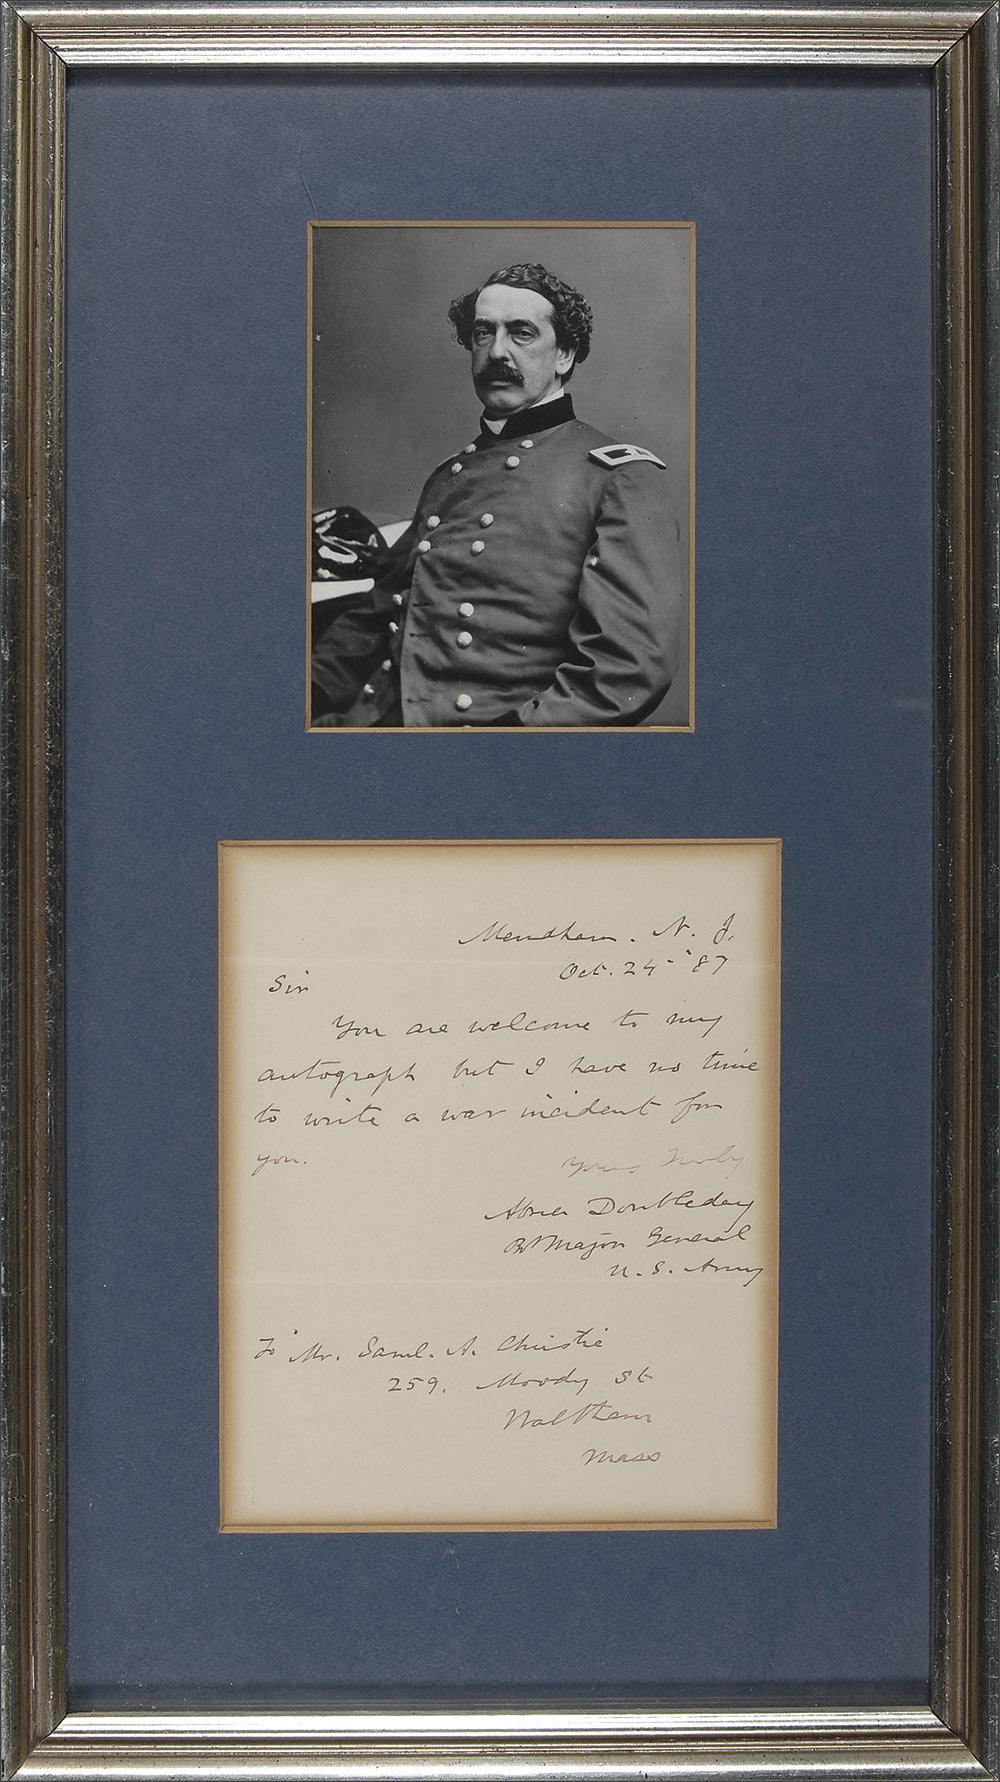 Mendham. N. J.
Oct. 24 - '87
Sir
You are welcome to my
autograph but I have no time
to write a war incident for
you.
Yours truly
Abner Doubleday
Bt Major General
U. S. Army
To Mr. Saml. A. Christie
259. Moody St
Waltham
Mass